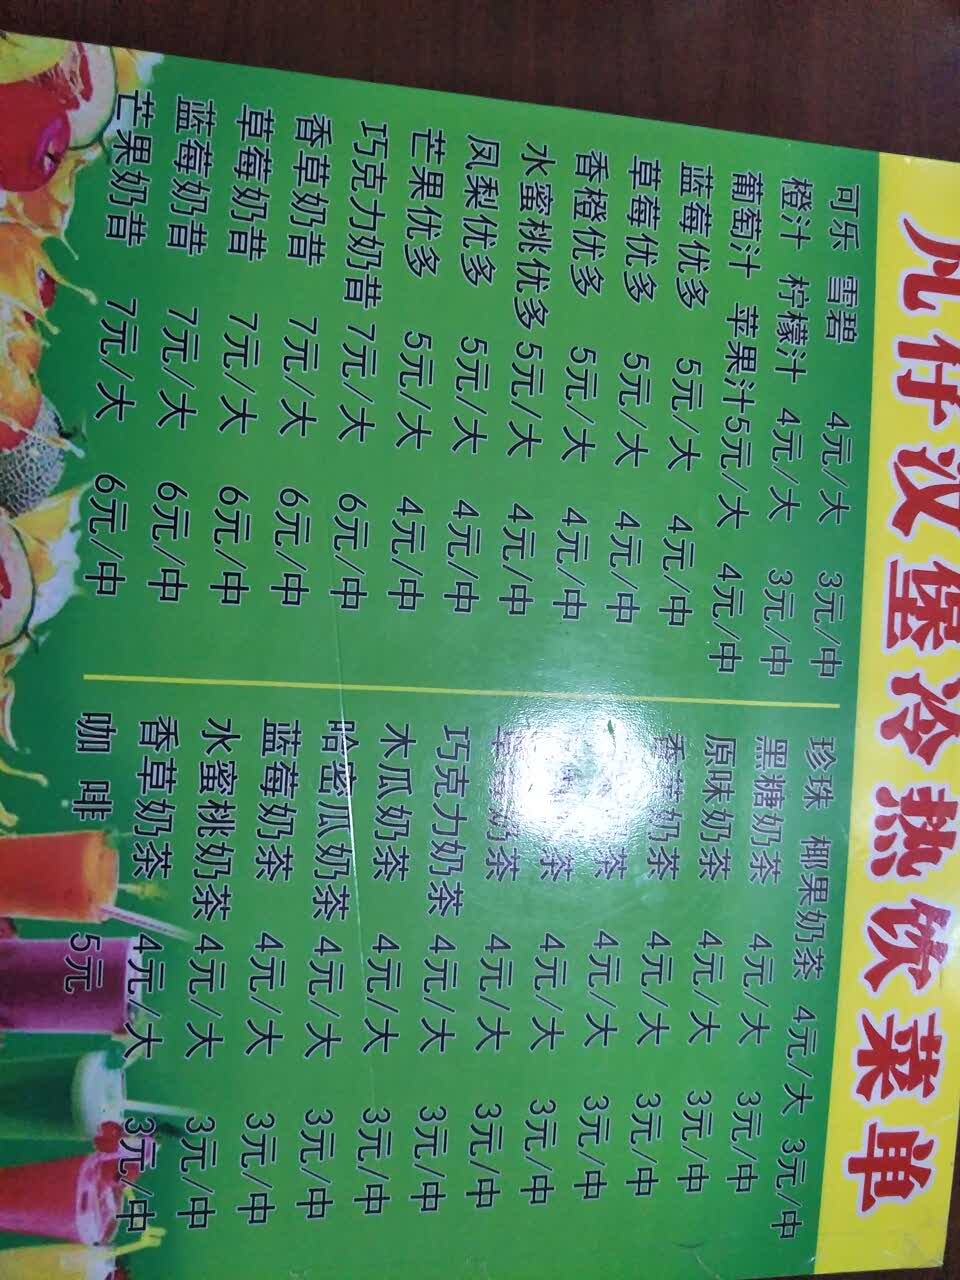 凡仔汉堡冷热饮菜单
可乐 雪碧 4元/大 3元/中
橙汁 柠檬汁 4元/大 3元/中
葡萄汁 苹果汁5元/大 4元/中
蓝莓优多 5元/大 4元/中
草莓优多 5元/大 4元/中
香橙优多 5元/大 4元/中
水蜜桃优多5元/大 4元/中
凤梨优多 5元/大 4元/中
芒果优多 5元/大 4元/中
巧克力奶昔 7元/大 6元/中
香草奶昔 7元/大 6元/中
草莓奶昔 7元/大 6元/中
蓝莓奶昔 7元/大 6元/中
芒果奶昔 7元/大 6元/中
珍珠 椰果奶茶 4元/大 3元/中
黑糖奶茶 4元/大 3元/中
原味奶茶 4元/大 3元/中
奶茶 4元/大 3元/中
茶 4元/大 3元/中
茶 4元/大 3元/中
奶茶 4元/大 3元/中
巧克力奶茶 4元/大 3元/中
木瓜奶茶 4元/大 3元/中
哈密瓜奶茶 4元/大 3元/中
蓝莓奶茶 4元/大 3元/中
水蜜桃奶茶 4元/大 3元/中
香草奶茶 4元/大 3元/中
咖啡 5元